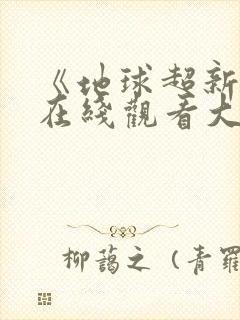 《地球超新
在綫觀看大
柳蔼之（青羅